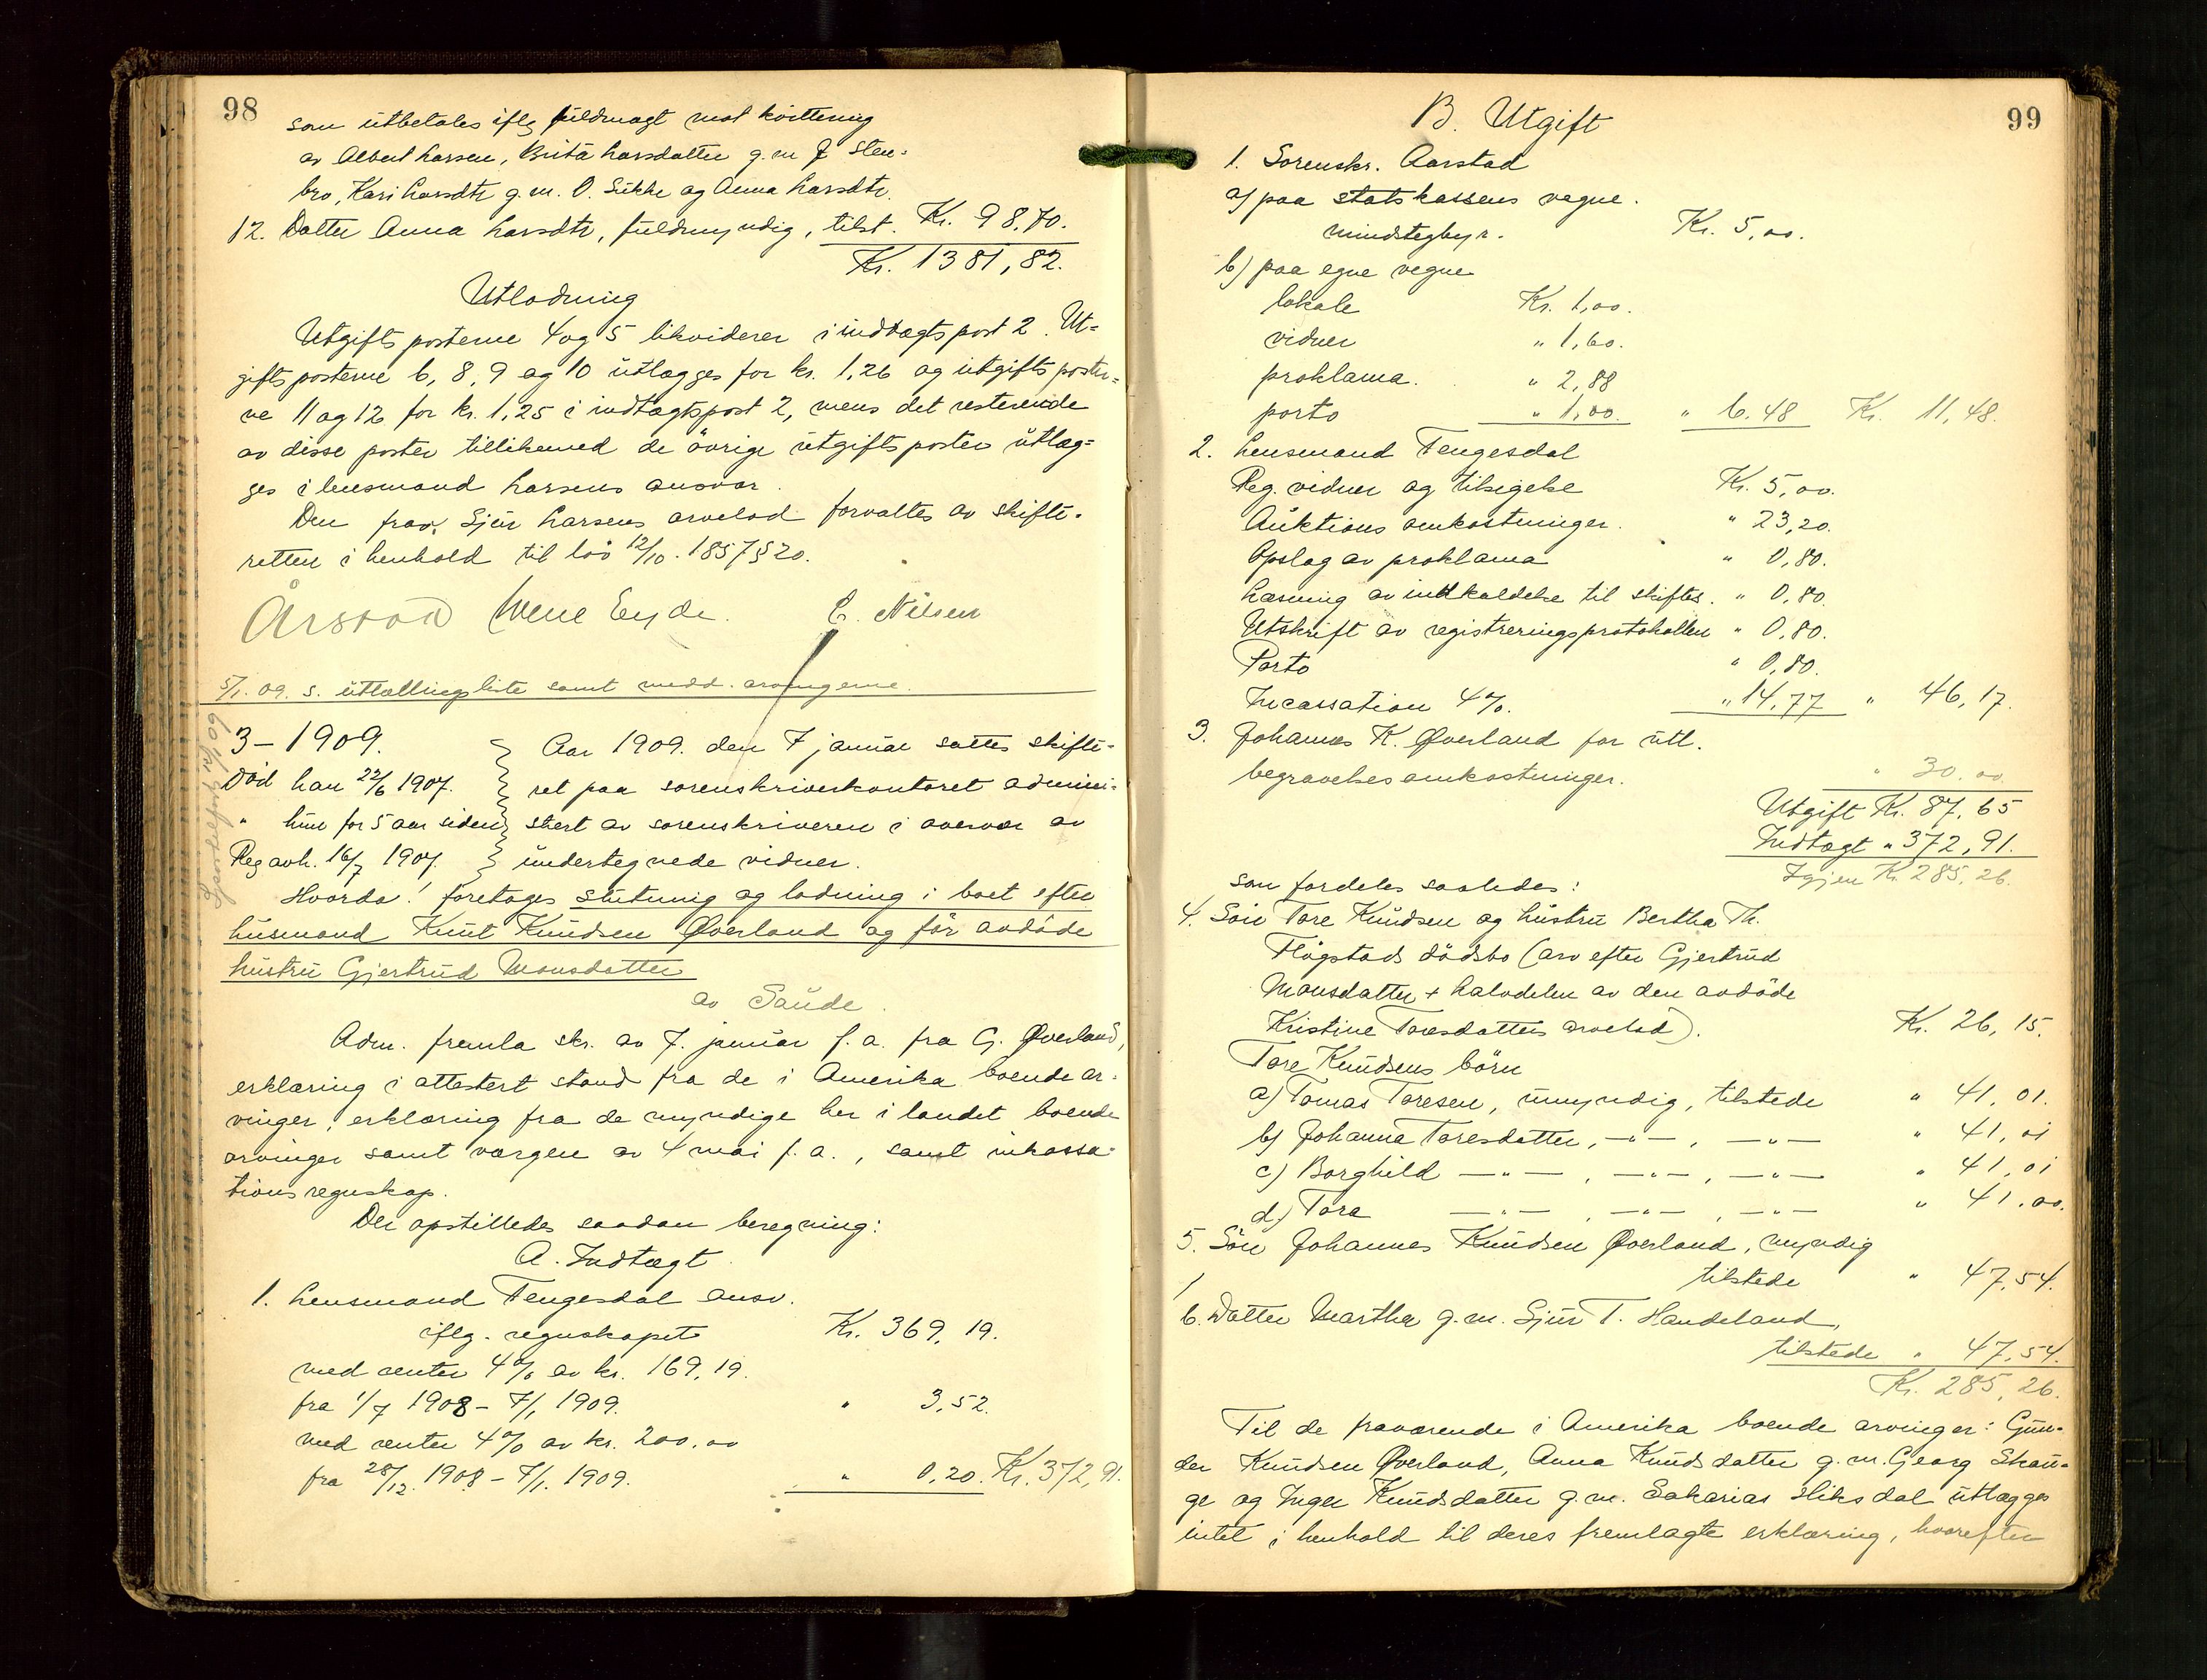 98
som utbetales iflg fuldmagt mot kvittering
av Albert Larsen, Brita Larsdatter g.m. J Sten-
bro, Kari Larsdtr g.m. O. Sukke og Anna Larsdtr.
12. Datter Anna Larsdtr, fuldmyndig, tilst. Kr. 98,70.
Kr. 1381,82.
Utlodning
Utgiftsposterne 4 og 5 likviderer i indtægtspost 2. Ut-
giftsposterne 6, 8, 9 og 10 utlægges for kr. 1,26 og utgiftsposter-
ne 11 og 12 for kr. 1,25 i indtægtspost 2, mens det resterende
av disse poster tillikemed de övrige utgiftsposter utlæg-
ges i lensmand Larsens ansvar.
Den frav. Sjur Larsens arvelod forvaltes av skifte-
retten i henhold til lov 12/10. 1857 § 20.
Årstad Wene Eyde. C. Nilsen
5/1. 09. s. utlællingsliste samt medd. arvingerne.
3 - 1909.
Död han 22/6 1907.
" hun for 5 aar siden
Reg avh. 16/7 1907.
Aar 1909. den 7 januar sattes skifte-
ret paa sorenskriverkontoret admini-
stert av sorenskriveren i overvær av
undertegnede vidner.
Hvorda! foretages slutning og lodning i boet efter
husmand Knut Knudsen Øverland og för avdöde
hustru Gjertrud Monsdatter
av Saude.
Adm. fremla skr. av 7. januar f.a. fra G. Øverland,
erklæring i attestert stand fra de i Amerika boende ar-
vinger, erklæring fra de myndige her i landet boende
arvinger samt værgen av 4 mai f.a., samt inkassa-
tionsregnskap.
Der opstilledes saadan beregning:
A. Indtægt
1. Lensmand Tengesdal ansv.
iflg. regnskapet Kr. 369,19.
med renter 4% av kr. 169,19.
fra 1/7 1908 - 7/1 1909. " 3,52.
med renter 4% av kr. 200,00
fra 28/12. 1908 - 7/1. 1909. " 0,20. Kr. 372,91.
99
B. Utgift
1. Sorenskr. Aarstad
a) paa statskassens vegne.
mindstegbyr. Kr. 5,00.
b) paa egne vegne
lokale Kr. 1,00.
vidner " 1,60.
proklama. " 2,88
porto " 1,00. " 6.48 Kr. 11,48.
2. Lensmand Tengesdal
Reg. vidner og tilsigelse Kr. 5,00.
Auktions omkostninger. " 23,20.
Opslag av proklama " 0,80.
Læsning av indkaldelse til skiftes. " 0,80.
Utskrift av registreringsprotokollen " 0,80.
Porto " 0,80.
Incassation 4%. " 14,77 " 46,17.
3. Johannes K. Øverland for utl.
begravelsesomkostninger. " 30.00
Utgift Kr. 87,65
Indtægt " 372,91.
Igjen Kr. 285,26.
som fordeles saaledes:
4. Søn Tore Knudsen og hustru Bertha Th.
Högstads dödsbo (arv efter Gjertrud
Monsdatter + halvdelen av den avdöde
Kristine Toresdatters arvelod). Kr. 26,15.
Tore Knudsens börn
a) Tomas Toresen, umyndig, tilstede " 41,01.
b) Johanna Toresdatter, —"—, —"— " 41,01
c) Borghild —"—, —"—, —"— " 41,01
d) Tora —"—, —"—, —"— " 41,00.
5. Sön Johannes Knudsen Øverland, myndig
tilstede " 47,54.
6. Datter Martha g.m. Sjur T. Handeland,
tilstede " 47,54.
Kr. 285,26.
Til de fraværende i Amerika boende arvinger: Gun-
der Knudsen Øverland, Anna Knudsdatter g.m. Georg Skau-
ge og Inger Knudsdatter g.m. Sakarias Hiksdal utlægges
intet i henhold til deres fremlagte erklæring, hvorefter